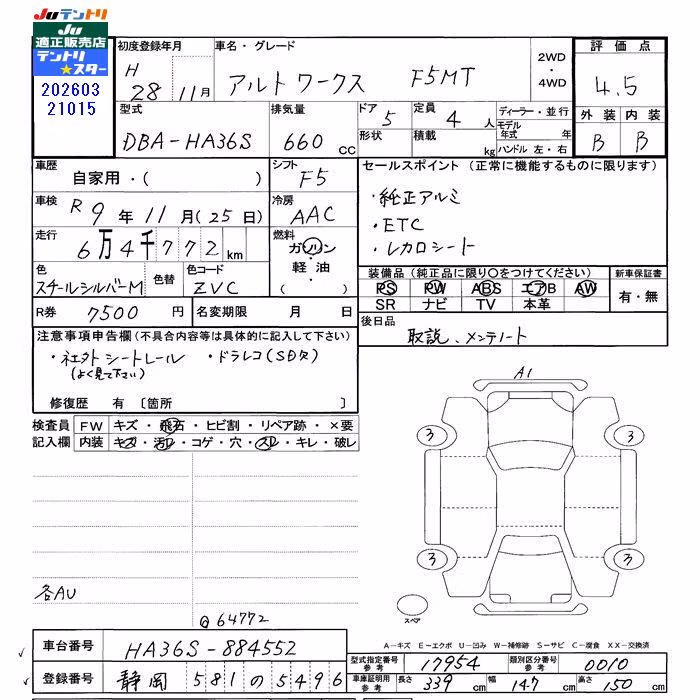 JUテントリ
JU
適正販売店
テントリ
★スター
202603
21015
初度登録年月
H
28 11月
車名・グレード
アルトワークス F5MT
2WD
・
4WD
評価点
4.5
型式
DBA-HA36S
排気量
660 cc
ドア
5
形状
定員
4 人
積載
kg
ディーラー・並行
モデル
年式 年
ハンドル 左・右
外装 内装
B B
車歴
自家用・( )
シフト
F5
車検
R 9年11月(25日)
冷房
AAC
走行
6万4千772km
燃料
ガソリン
軽油
( )
色
スチールシルバーM
色替
色コード
ZVC
R券 7500 円
名変期限 月 日
セールスポイント (正常に機能するものに限ります)
・純正アルミ
・ETC
・レカロシート
装備品(純正品に限り○をつけてください)
PS PW ABS エアB AW
SR ナビ TV 本革
新車保証書
有・無
後日品
取説、メンテノート
注意事項申告欄(不具合内容等は具体的に記入して下さい)
・ネエクトシートレール ・ドラレコ(SD欠)
(よく見て下さい)
修復歴 有 〔箇所 〕
検査員
記入欄
FW キズ・飛石・ヒビ割・リペア跡・×要
内装 キズ・汚レ・コゲ・穴・スレ・キレ・破レ
各AU
@64772
A1
3 3
3 3
スペア
A－キズ E－エクボ U－凹み W－補修跡 S－サビ C－腐食 XX－交換済
車台番号 HA36S-884552
登録番号 静岡 581 の 5496
型式指定番号
参考
17954
類別区分番号
参考
0010
車庫証明用
参考
長さ 339 cm 幅 147 cm 高さ 150 cm